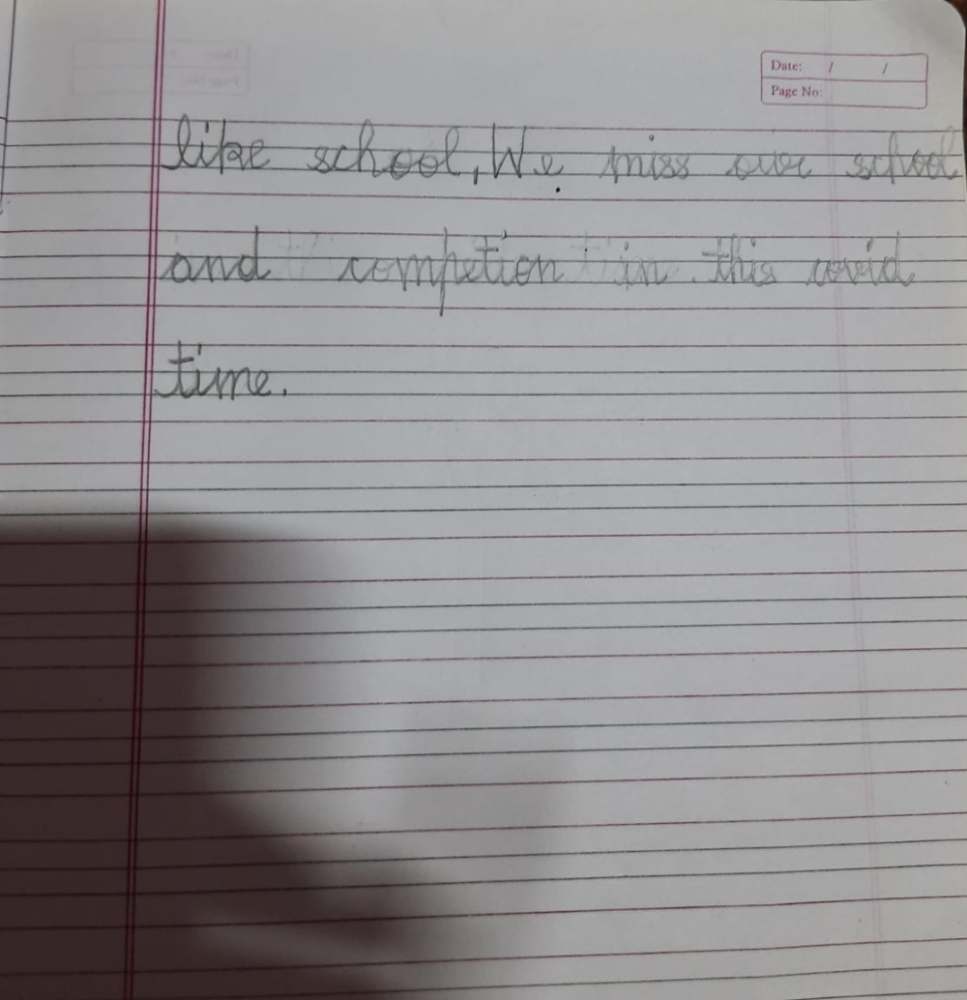 Date: / /
Page No:
like school, We miss our school
and competion in this covid
time.